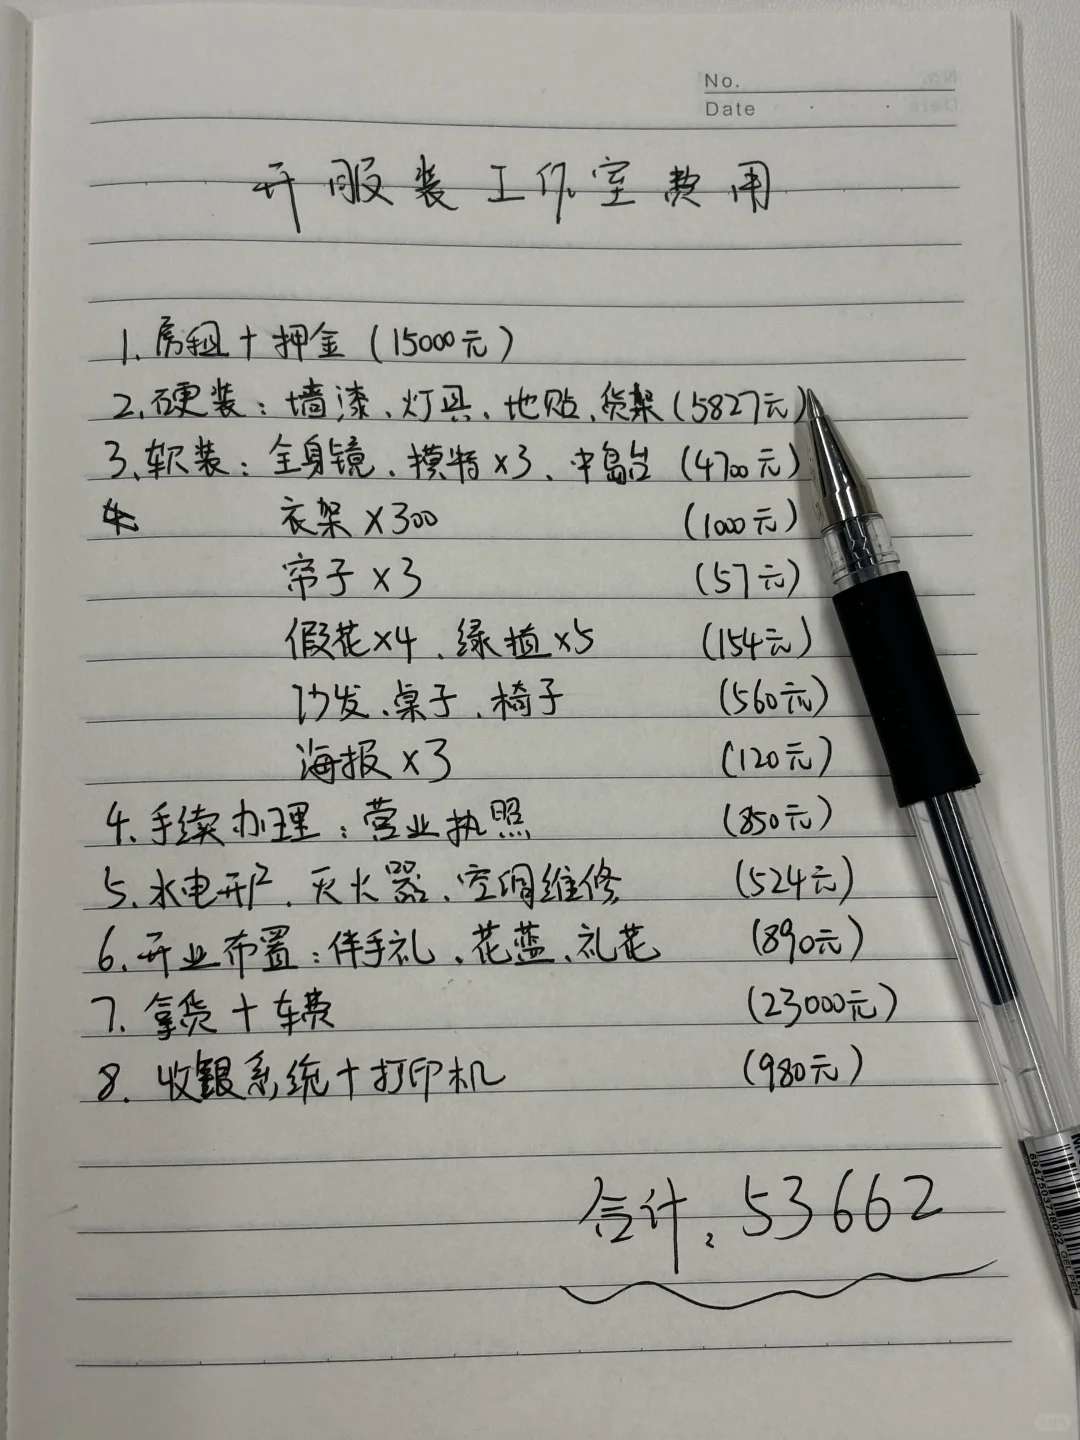 No.
Date
开服装工作室费用
1. 房租+押金(15000元)
2. 硬装:墙漆、灯具、地贴、货架(5827元)
3. 软装:全身镜、模特×3、中岛台(4700元)
衣架×300(1000元)
帘子×3(57元)
假花×4、绿植×5(154元)
沙发、桌子、椅子(560元)
海报×3(120元)
4. 手续办理:营业执照(850元)
5. 水电开户、灭火器、空调维修(524元)
6. 开业布置:伴手礼、花蓝、礼花(890元)
7. 拿货+车费(23000元)
8. 收银系统+打印机(980元)
合计:53662
6947503718022 GEL PEN